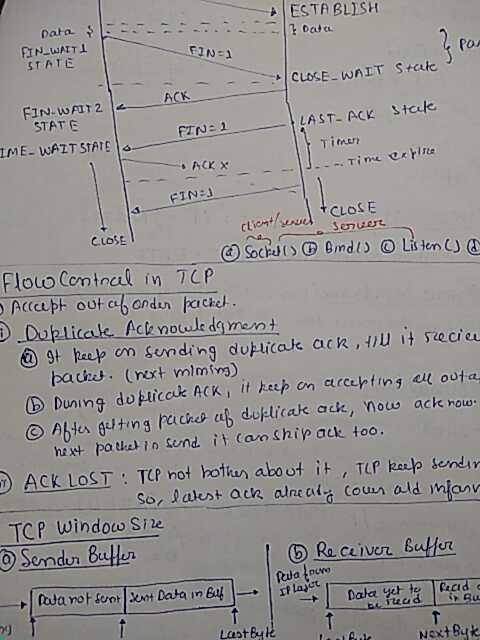 ESTABLISH
Data
} Data
FIN_WAIT1
STATE
FIN=1
CLOSE_WAIT State
ACK
FIN_WAIT2
STATE
LAST_ACK State
FIN=1
IME_WAIT STATE
Timer
ACK X
Time expire
FIN=1
CLOSE
CLOSE
client/server
server
(a) Socket() (b) Bind() (c) Listen() (d)
Flow Control in TCP
Accept out of order packet.
Duplicate Acknowledgment
(a) It keep on sending duplicate ack, till it recie
packet. (next miming)
(b) During duplicate ACK, it keep on accepting all outa
(c) After getting packet of duplicate ack, now acknow.
next packet in send it can skip ack too.
ACK LOST : TCP not bother about it, TCP keep sendin
so, latest ack already cover old infor
TCP Window Size
(a) Sender Buffer
(b) Receiver Buffer
Data from
IP Layer
Data not sent
Sent Data in Buf
Data yet to
be recid
Recid
in Bu
Last Byte
Next Byte